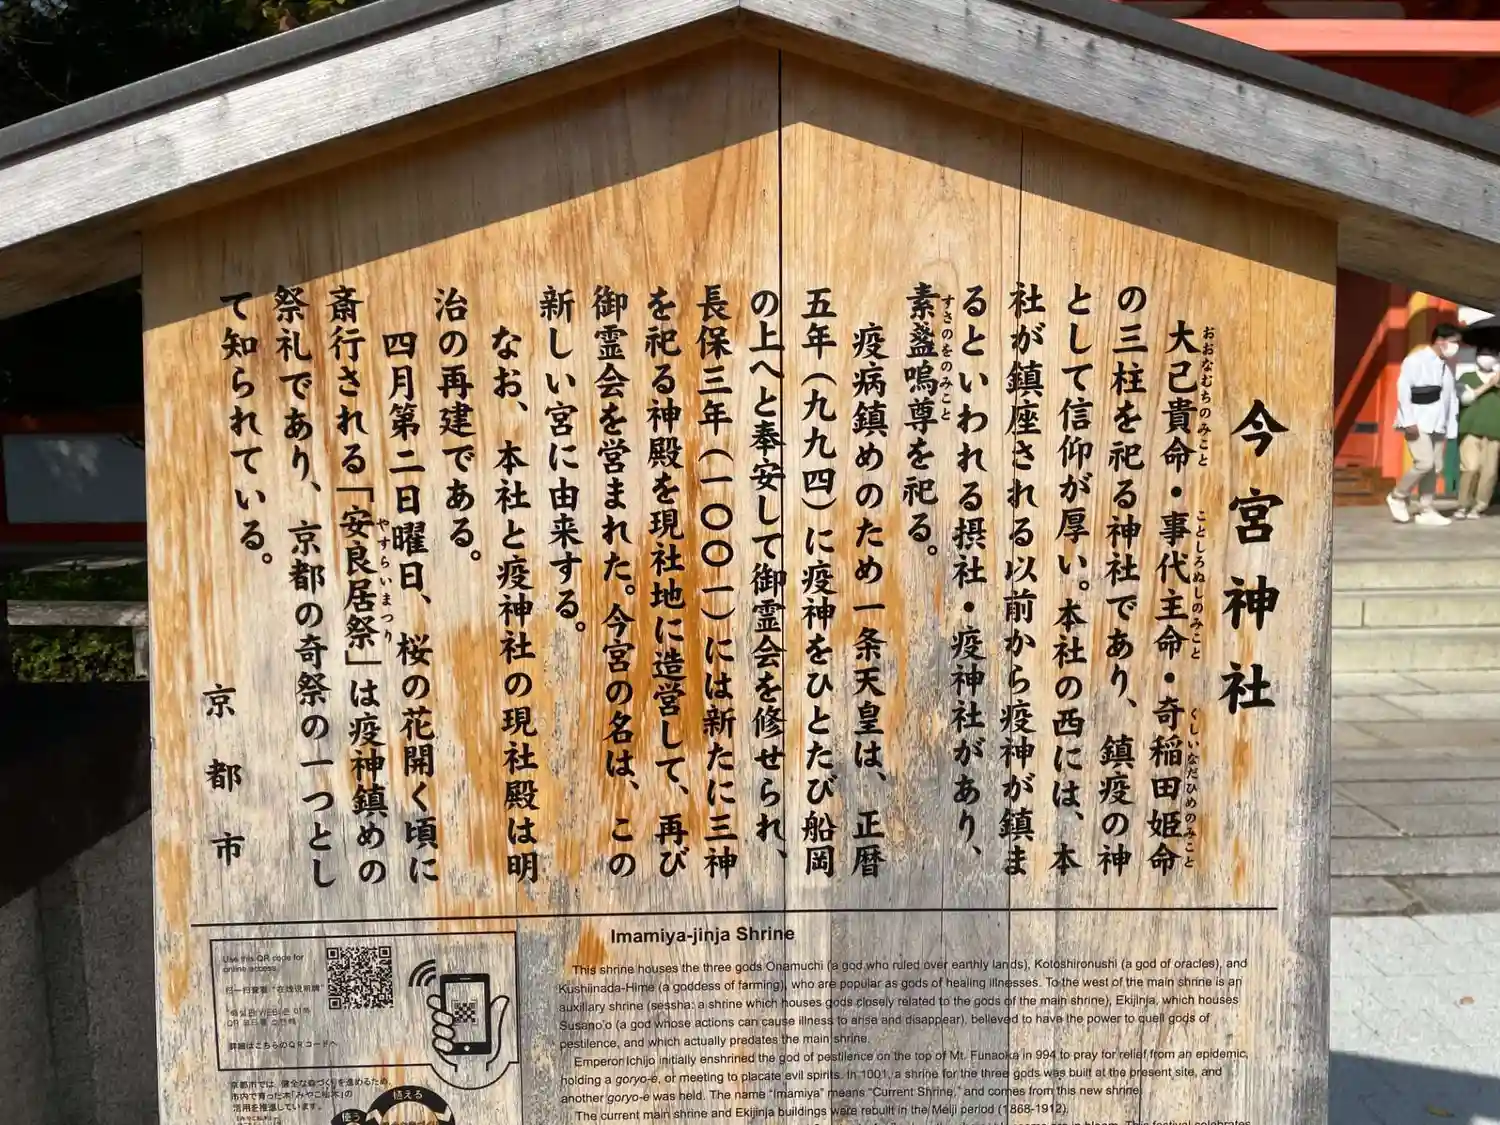 今宮神社
大己貴命・事代主命・奇稲田姫命
おおなむちのみこと ことしろぬしのみこと くしいなだひめのみこと
の三柱を祀る神社であり、鎮疫の神
として信仰が厚い。本社の西には、本
社が鎮座される以前から疫神が鎮ま
るといわれる摂社・疫神社があり、
素盞嗚尊を祀る。
すさのをのみこと
疫病鎮めのため一条天皇は、正暦
五年(九九四)に疫神をひとたび船岡
の上へと奉安して御霊会を修せられ、
長保三年(一〇〇一)には新たに三神
を祀る神殿を現社地に造営して、再び
御霊会を営まれた。今宮の名は、この
新しい宮に由来する。
なお、本社と疫神社の現社殿は明
治の再建である。
四月第二日曜日、桜の花開く頃に
斎行される「安良居祭」は疫神鎮めの
やすらいまつり
祭礼であり、京都の奇祭の一つとし
て知られている。
京都市
Imamiya-jinja Shrine
This shrine houses the three gods Onamuchi (a god who ruled over earthly lands), Kotoshironushi (a god of oracles), and
Kushiinada-Hime (a goddess of farming), who are popular as gods of healing illnesses. To the west of the main shrine is an
auxiliary shrine (sessha: a shrine which houses gods closely related to the gods of the main shrine), Ekijinja, which houses
Susano'o (a god whose actions can cause illness to arise and disappear), believed to have the power to quell gods of
pestilence, and which actually predates the main shrine.
Emperor Ichijo initially enshrined the god of pestilence on the top of Mt. Funaoka in 994 to pray for relief from an epidemic,
holding a goryo-e, or meeting to placate evil spirits. In 1001, a shrine for the three gods was built at the present site, and
another goryo-e was held. The name "Imamiya" means "Current Shrine," and comes from this new shrine.
The current main shrine and Ekijinja buildings were rebuilt in the Meiji period (1868-1912).
Use this QR code for
online access.
扫一扫查看“在线说明牌”
詳細はこちらのQRコードへ
京都市では、健全な森づくりを進めるため、
市内で育った木「みやこ杣木」の
活用を推進しています。
植える
使う